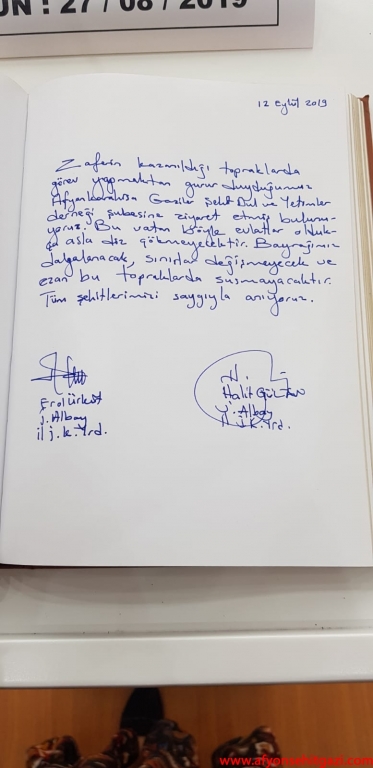 ÜN : 27 / 08 / 2019
12 Eylül 2019
Zaferin kazanıldığı topraklarda
görev yapmaktan gurur duyduğumuz
Afyonkarahisar Gaziler Şehit Dul ve Yetimler
derneği şubesine ziyaret etmiş bulunu-
yoruz. Bu vatan böyle evlatlar olduk-
ça asla diz çökmeyecektir. Bayrağımız
dalgalanacak, sınırlar değişmeyecek ve
ezan bu topraklarda susmayacaktır.
Tüm şehitlerimizi saygıyla anıyoruz.
Erol Ürküt
j. Albay
il j. k. Yrd.
Halit
j. Albay
il j. k. Yrd.